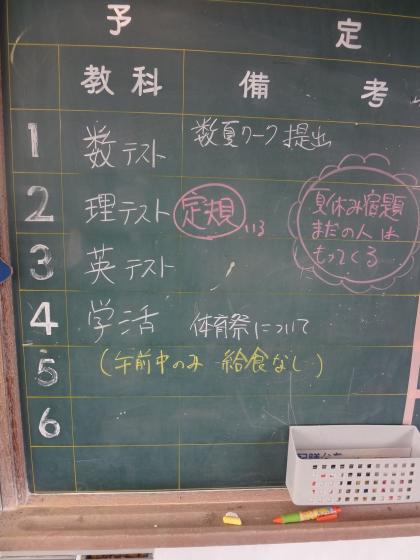 予定
教科 備考
1 数テスト 数夏ワーク提出
2 理テスト 定規いる
3 英テスト
4 学活 体育祭について
5 (午前中のみ 給食なし)
6
夏休み宿題
まだの人は
もってくる